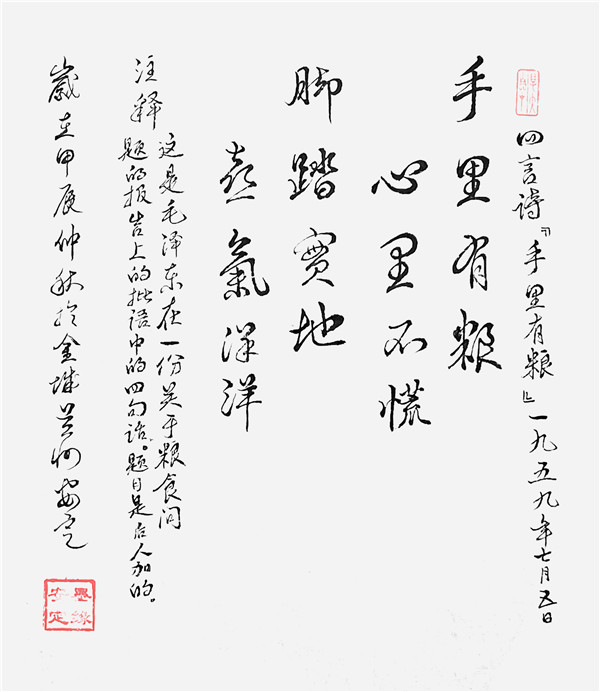 四言詩『手里有粮』一九五九年七月五日
手里有粮
心里不慌
脚踏實地
喜氣洋洋
注释
这是毛泽东在一份关于粮食问
题的报告上的批语中的四句话。题目是后人加的。
歲在甲辰仲秋於金城兰州安定
墨緣
安定